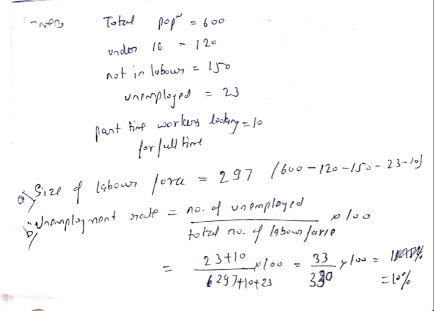 Total pop^n = 600
under 16 = 120
not in labour = 150
unemployed = 23
part time workers looking = 10
for full time
a) Size of labour force = 297 (600 - 120 - 150 - 23 - 10)
b) Unemployment rate = no. of unemployed
total no. of labour force × 100
= 23+10 / 297+10+23 × 100 = 33 / 330 × 100 =
= 10%